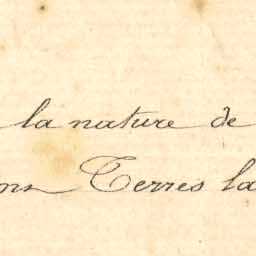 la nature de
ns Terres la